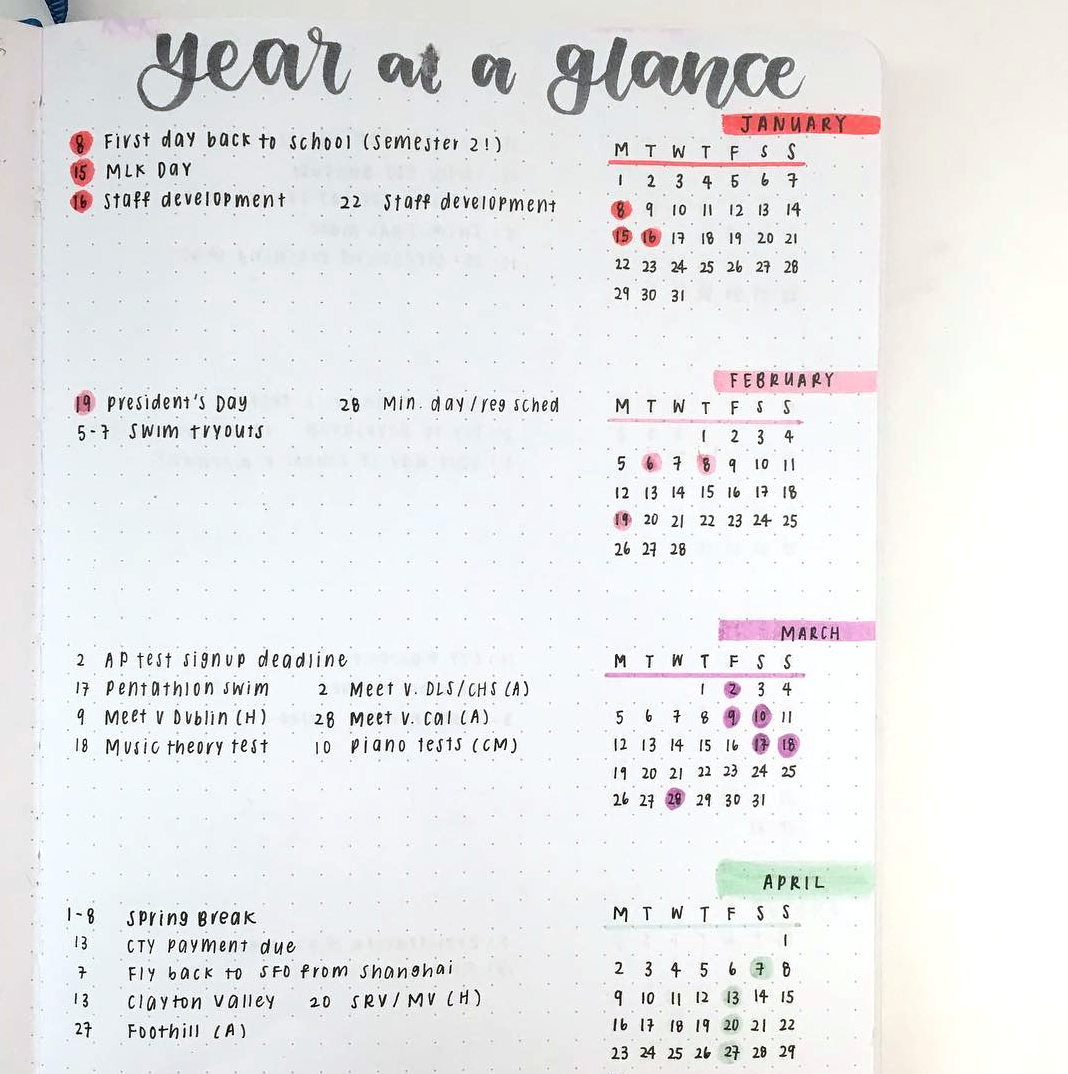 year at a glance
JANUARY
8 First day back to school (semester 2!)
15 MLK Day
16 Staff development 22 Staff development
M T W T F S S
1 2 3 4 5 6 7
8 9 10 11 12 13 14
15 16 17 18 19 20 21
22 23 24 25 26 27 28
29 30 31
FEBRUARY
19 president's Day 28 Min. day/reg sched
5-7 Swim tryouts
M T W T F S S
1 2 3 4
5 6 7 8 9 10 11
12 13 14 15 16 17 18
19 20 21 22 23 24 25
26 27 28
MARCH
2 AP test signup deadline
17 Pentathlon swim 2 Meet v. DLS/CHS (A)
9 Meet v Dublin (H) 28 Meet v. Cal (A)
18 Music theory test 10 piano tests (CM)
M T W T F S S
1 2 3 4
5 6 7 8 9 10 11
12 13 14 15 16 17 18
19 20 21 22 23 24 25
26 27 28 29 30 31
APRIL
1-8 Spring Break
13 CTY payment due
7 Fly back to SFO from shanghai
13 Clayton Valley 20 SRV/MV (H)
27 Foothill (A)
M T W T F S S
1
2 3 4 5 6 7 8
9 10 11 12 13 14 15
16 17 18 19 20 21 22
23 24 25 26 27 28 29